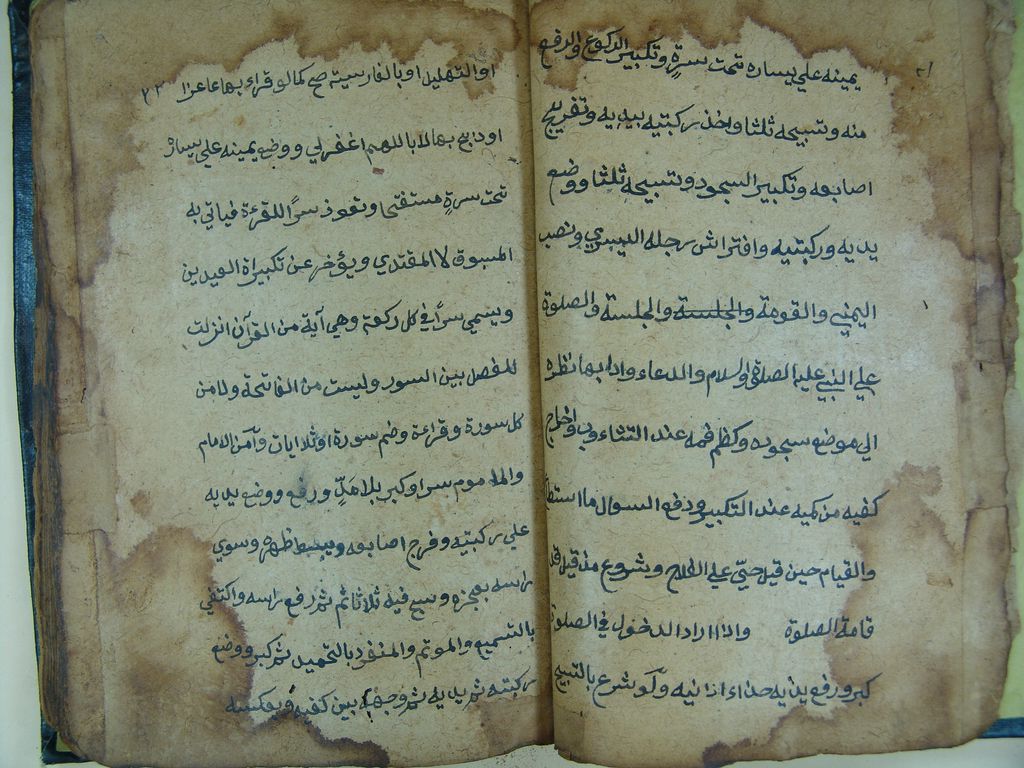 يمينه علي يساره تحت سرةٍ وتكبير الركوع والرفع
منه وتسبيحه ثلثا واخذ ركبتيه بيديه وتفريج
اصابعه وتكبير السجود وتسبيحه ثلثا ووضع
يديه وركبتيه وافتراش رجله اليسري ونصب
اليمني والقومة والجلسة والجلسة والصلوة
علي النبي عليه الصلوة والسلام والدعاء وادابها نظره
الي موضع سجوده وكظم فمه عند التثاءوب واخراج
كفيه من كميه عند التكبير ودفع السوال ما استطاع
والقيام حين قيل حيّ علي الفلاح وشروع مذ قيل قد
قامة الصلوة واذا اراد الدخول في الصلوة
كبر ورفع يديه حذاء اذانيه ولو شرع بالتسبيح
٢٢
او التهليل او بالفارسية صح كما لو قراء بها عاجزا
او ذبح بها لا باللهم اغفرلي ووضع يمينه علي يساره
تحت سرةٍ مستفتحا وتعوذ سرًا للقرءة فياتي به
المسبوق لا المقتدي ويؤخر عن تكبيراة العيدين
ويسمي سرًا في كل ركعة وهي آية من القرآن انزلت
للفصل بين السور وليست من الفاتحة ولا من
كل سورة وقراءة وضم سورة او ثلا ايات وآمن الامام
والماموم سرا وكبر بلا مدٍّ وركع ووضع يديه
علي ركبتيه وفرج اصابعه وبسط ظهره وسوي
راسه بعجزه وسبح فيه ثلاثا ثم ثم رفع راسه واكتفي
بالتسميع والموتم والمنفرد بالتحميد ثم كبر ووضع
ركبتيه ثم يديه ثم وجهه بين كفيه وبعكسه